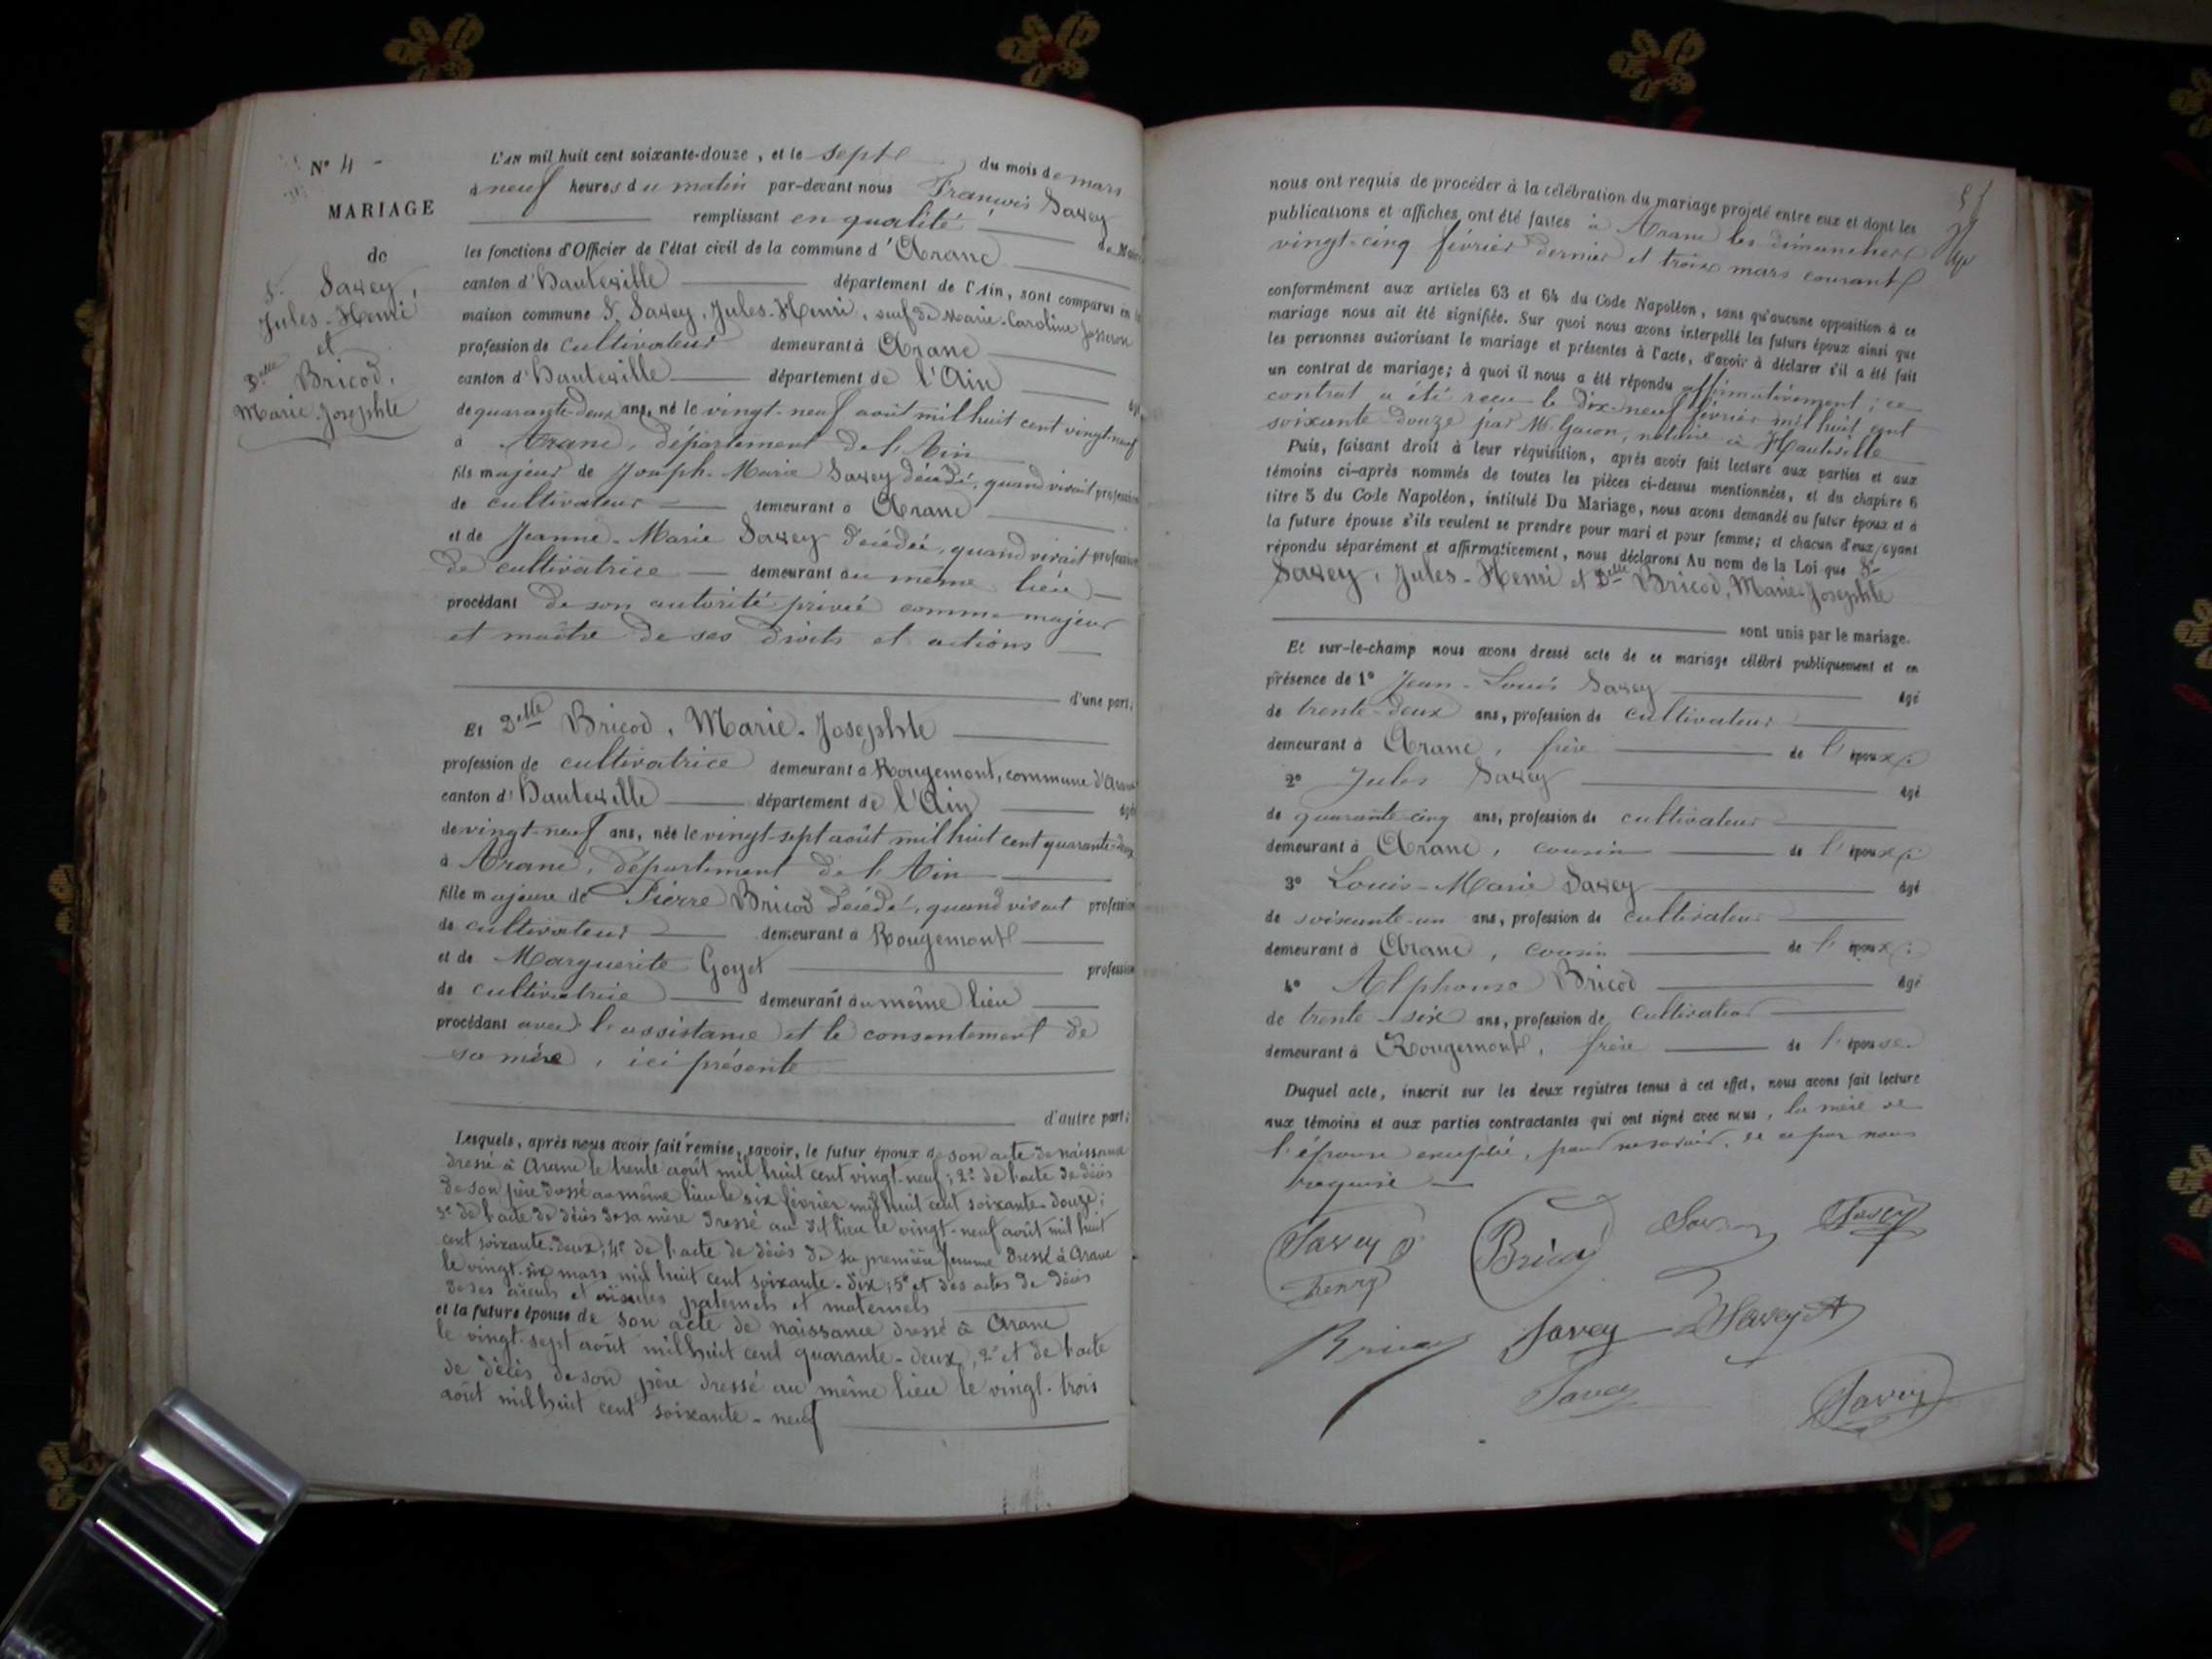 N° 4 -
MARIAGE
de
Sr Savey,
Jules-Henri
et
Delle Bricod,
Marie-Josephte
L'AN mil huit cent soixante-douze, et le sept du mois de mars
à neuf heures du matin par-devant nous François Savey
remplissant en qualité de Maire
les fonctions d'Officier de l'état civil de la commune d'Aranc
canton d'Hauteville département de l'Ain, sont comparus en la
maison commune Sr Savey, Jules-Henri, veuf de Marie-Caroline
profession de cultivateur demeurant à Aranc
canton d'Hauteville département de l'Ain âgé
de quarante-deux ans, né le vingt-neuf août mil huit cent vingt-neuf
à Aranc, département de l'Ain
fils majeur de Joseph-Marie Savey décédé, quand vivait profession
de cultivateur demeurant à Aranc
et de Jeanne-Marie Savey décédée, quand vivait profession
de cultivatrice demeurant au même lieu
procédant de son autorité privée comme majeur
et maître de ses droits et actions
d'une part.
Et Delle Bricod, Marie-Josephte
profession de cultivatrice demeurant à Rougemont, commune d'Aranc
canton d'Hauteville département de l'Ain âgée
de vingt-neuf ans, née le vingt-sept août mil huit cent quarante-deux
à Aranc, département de l'Ain
fille majeure de Pierre Bricod décédé, quand vivait profession
de cultivateur demeurant à Rougemont
et de Marguerite Goyet profession
de cultivatrice demeurant au même lieu
procédant avec l'assistance et le consentement de
sa mère, ici présente
d'autre part;
Lesquels, après nous avoir fait remise, savoir, le futur époux de son acte de naissance
dressé à Aranc le trente août mil huit cent vingt-neuf; 2° de l'acte de décès
de son père dressé au même lieu le six février mil huit cent soixante-douze;
3° de l'acte de décès de sa mère dressé au dit lieu le vingt-neuf août mil huit
cent soixante-deux; 4° de l'acte de décès de sa première femme dressé à Aranc
le vingt-six mars mil huit cent soixante-dix; 5° et des actes de décès
de ses aïeuls et aïeules paternels et maternels
et la future épouse de son acte de naissance dressé à Aranc
le vingt-sept août mil huit cent quarante-deux, 2° et de l'acte
de décès de son père dressé au même lieu le vingt-trois
août mil huit cent soixante-neuf
nous ont requis de procéder à la célébration du mariage projeté entre eux et dont les
publications et affiches ont été faites à Aranc les dimanches
vingt-cinq février dernier et trois mars courant
conformément aux articles 63 et 64 du Code Napoléon, sans qu'aucune opposition à ce
mariage nous ait été signifiée. Sur quoi nous avons interpellé les futurs époux ainsi que
les personnes autorisant le mariage et présentes à l'acte, d'avoir à déclarer s'il a été fait
un contrat de mariage; à quoi il nous a été répondu affirmativement; ce
contrat a été reçu le dix-neuf février mil huit cent
soixante-douze par Me Gacon, notaire à Hauteville
Puis, faisant droit à leur réquisition, après avoir fait lecture aux parties et aux
témoins ci-après nommés de toutes les pièces ci-dessus mentionnées, et du chapitre 6
titre 5 du Code Napoléon, intitulé Du Mariage, nous avons demandé au futur époux et à
la future épouse s'ils veulent se prendre pour mari et pour femme; et chacun d'eux ayant
répondu séparément et affirmativement, nous déclarons Au nom de la Loi que Sr
Savey, Jules-Henri et Delle Bricod, Marie-Josephte
sont unis par le mariage.
Et sur-le-champ nous avons dressé acte de ce mariage célébré publiquement et en
présence de 1° Jean-Louis Savey âgé
de trente-deux ans, profession de cultivateur
demeurant à Aranc, frère de l'époux;
2° Jules Savey âgé
de quarante-cinq ans, profession de cultivateur
demeurant à Aranc, cousin de l'époux;
3° Louis-Marie Savey âgé
de soixante-un ans, profession de cultivateur
demeurant à Aranc, cousin de l'époux;
4° Alphonse Bricod âgé
de trente-six ans, profession de cultivateur
demeurant à Rougemont, frère de l'épouse.
Duquel acte, inscrit sur les deux registres tenus à cet effet, nous avons fait lecture
aux témoins et aux parties contractantes qui ont signé avec nous, la mère de
l'épouse exceptée, pour ne savoir, de ce par nous
requise
Savey Bricod Savey Savey
henry
Bricod Savey Savey A
Savey Savey